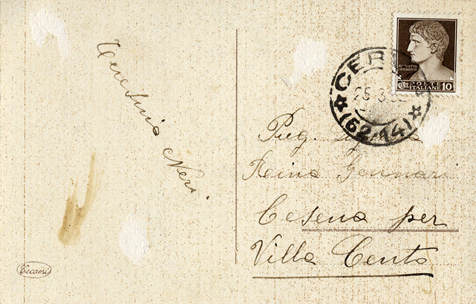 Teresina Neri
POSTE
ITALIANE
10
CER
25.3.3
(62-14)
Preg.
Reina Gennari
Cesena per
Villa Cento
Cecami